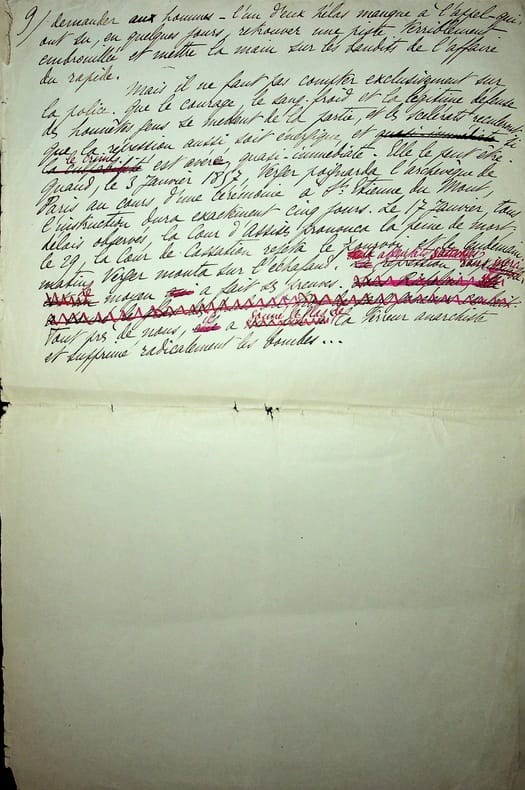 9/ demander aux hommes - l'un d'eux hélas manque à l'appel - qui
ont su, en quelques jours, retrouver une piste terriblement
embrouillée et mettre la main sur les bandits de l'affaire
du rapide.
Mais il ne faut pas compter exclusivement sur
la police. Que le courage, le sang-froid et la légitime défense
des honnêtes gens se mettent de la partie, et les scélérats reculeront
que la répression aussi soit énergique, et quasi-immédiate si
le crime est avéré quasi-immédiate. Elle le peut être.
Quand, le 3 Janvier 1857, Verger poignarda l'archevêque de
Paris au cours d'une cérémonie à St Etienne du Mont,
l'instruction dura exactement cinq jours. Le 17 Janvier, tous
délais observés, la Cour d'Assises prononça la peine de mort,
le 29, la Cour de Cassation rejeta le pourvoi. Et le lendemain
matin, Verger monta sur l'échafaud. La répression sans merci
moyen a fait ses preuves.
Tout près de nous, elle a donné le glas de la terreur anarchiste
et supprimé radicalement les bombes...